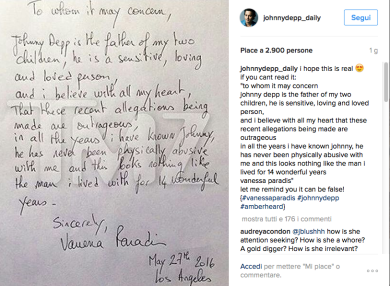 To whom it may concern,
Johnny Depp is the father of my two
children, he is a sensitive, loving
and loved person,
and i believe with all my heart,
that these recent allegations being
made are outrageous,
in all the years i have known Johnny,
he has never been physically abusive
with me and this looks nothing like
the man i lived with for 14 wonderful
years.
Sincerely,
Vanessa Paradis
May 27th 2016
Los Angeles
johnnydepp_daily
Segui
Place a 2.900 persone
1 g
johnnydepp_daily i hope this is real 😊
if you cant read it:
"to whom it may concern
johnny depp is the father of my two
children, he is sensitive, loving and loved
person,
and i believe with all my heart that these
recent allegations being made are
outrageous
in all the years i have known johnny, he
has never been physically abusive with
me and this looks nothing like the man i
lived with for 14 wonderful years
vanessa paradis"
let me remind you it can be false!
{#vanessaparadis #johnnydepp
#amberheard}
mostra tutti e 176 i commenti
audreyacordon @jblushhh how is she
attention seeking? How is she a whore?
A gold digger? How is she irrelevant?
Accedi per mettere "Mi piace" o
commentare.